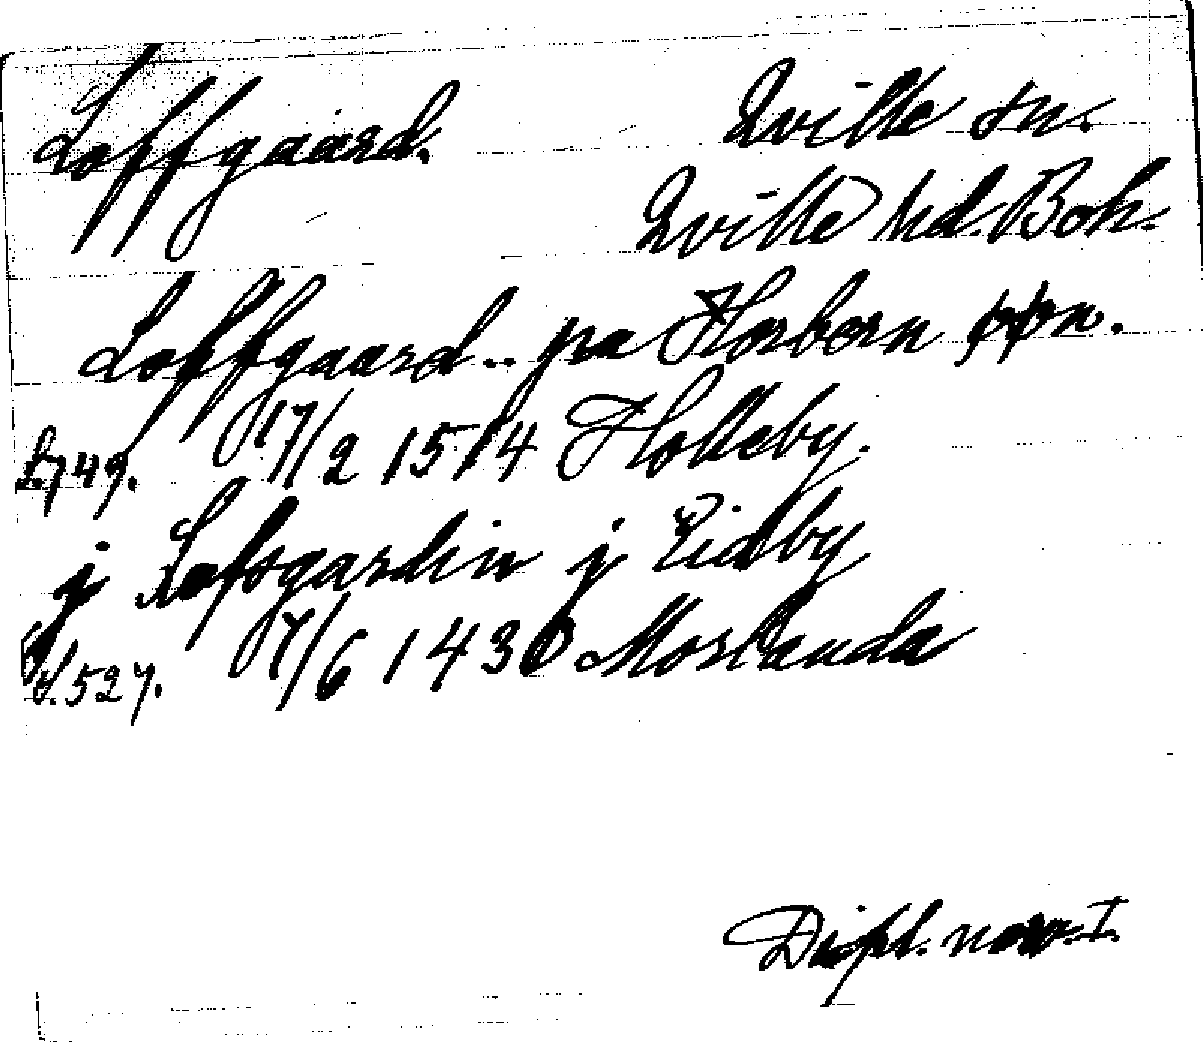 Loffgaard.
Qville sn.
Qville hd. Boh.
Loffgaard .. pa Horborn
S. 749. 17/2 1514 Holleby.
j Lofsgardin j Eidby
S. 527. 17/6 1430 Morlanda
Dipl. norv. I.